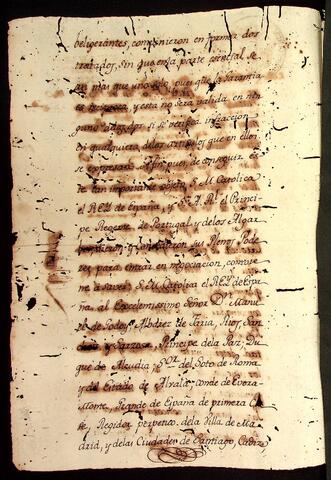 beligerantes, combinieron en formar dos
tratados, sin que en la parte esencial se
an mas que uno solo, pues que la Garantia
es reciproca, y esta no sera valida en nin
guno de los dos, si se verifica infraccion
en qualquiera de los articulos que en ellos
se expresaren. A fin pues de conseguir es
te tan importante objeto, S. M. Catolica
el REY de España, y S. A. R.l el Princi
pe Regente de Portugal y de los Algar
bes, dieron y concedieron sus Plenos Pode
res para entrar en negociacion, combie
ne á saver; S. M. Catolica el REY de Espa
ña, al Excelentissimo Señor D.n Manu
el de Godoy, Albarez de Faria, Rios, San
chez y Zarzosa, Principe de la Paz, Du
que de Alcudia, S.or del Soto de Roma
y del Estado de Alvalá; Conde de Evora
Monte, Grande de España de primera Cla
se, Regidor perpetuo de la Villa de Ma
drid, y de las Ciudades de Santiago, Cadiz